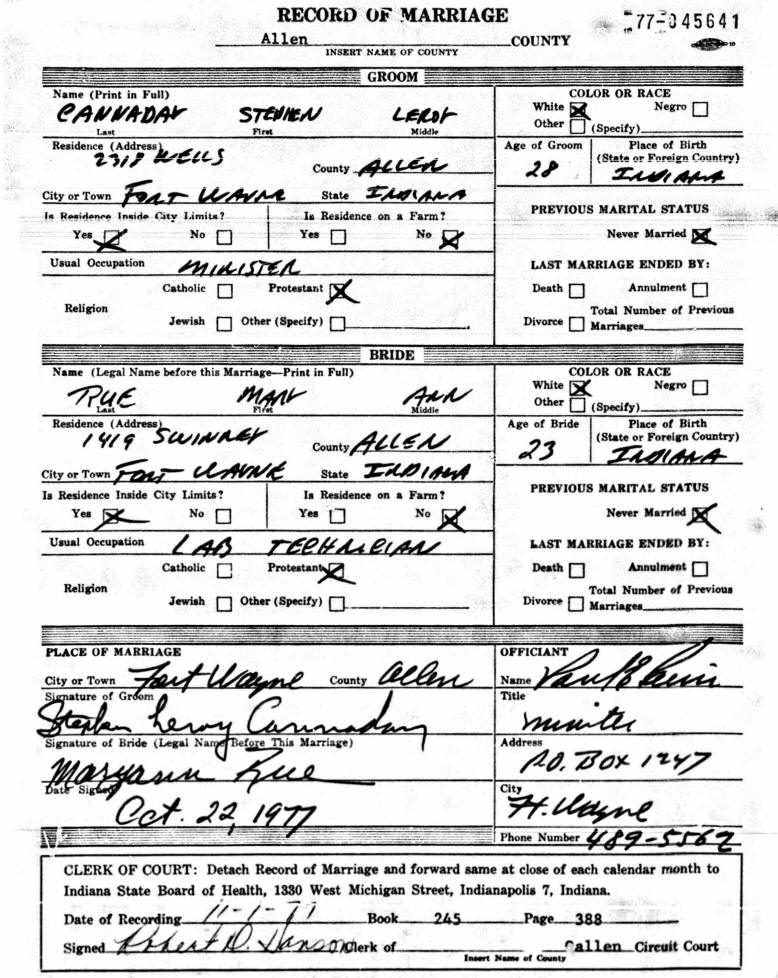 RECORD OF MARRIAGE
77-045641
Allen COUNTY
INSERT NAME OF COUNTY
GROOM
Name (Print in Full)
CANNADAY STEPHEN LEROY
Last First Middle
COLOR OR RACE
White ☒ Negro ☐
Other ☐ (Specify)
Residence (Address)
2318 WELLS
County ALLEN
Age of Groom
28
Place of Birth
(State or Foreign Country)
INDIANA
City or Town FORT WAYNE State INDIANA
Is Residence Inside City Limits? Is Residence on a Farm?
Yes ☒ No ☐ Yes ☐ No ☒
PREVIOUS MARITAL STATUS
Never Married ☒
Usual Occupation MINISTER
LAST MARRIAGE ENDED BY:
Catholic ☐ Protestant ☒
Religion
Jewish ☐ Other (Specify) ☐
Death ☐ Annulment ☐
Total Number of Previous
Divorce ☐ Marriages
BRIDE
Name (Legal Name before this Marriage—Print in Full)
RUE MARY ANN
Last First Middle
COLOR OR RACE
White ☒ Negro ☐
Other ☐ (Specify)
Residence (Address)
1419 SWINNEY
County ALLEN
Age of Bride
23
Place of Birth
(State or Foreign Country)
INDIANA
City or Town FORT WAYNE State INDIANA
Is Residence Inside City Limits? Is Residence on a Farm?
Yes ☒ No ☐ Yes ☐ No ☒
PREVIOUS MARITAL STATUS
Never Married ☒
Usual Occupation LAB TECHNICIAN
LAST MARRIAGE ENDED BY:
Catholic ☐ Protestant ☒
Religion
Jewish ☐ Other (Specify) ☐
Death ☐ Annulment ☐
Total Number of Previous
Divorce ☐ Marriages
PLACE OF MARRIAGE
City or Town Fort Wayne County Allen
Signature of Groom
Stephen Leroy Cannaday
Signature of Bride (Legal Name Before This Marriage)
Maryann Rue
Date Signed
Oct. 22, 1977
OFFICIANT
Name Paul E.
Title
minister
Address
P.O. BOX 1247
City
Ft. Wayne
Phone Number 489-5562
CLERK OF COURT: Detach Record of Marriage and forward same at close of each calendar month to
Indiana State Board of Health, 1330 West Michigan Street, Indianapolis 7, Indiana.
Date of Recording 11-1-77 Book 245 Page 388
Signed Robert D. Hanson Clerk of Callen Circuit Court
Insert Name of County